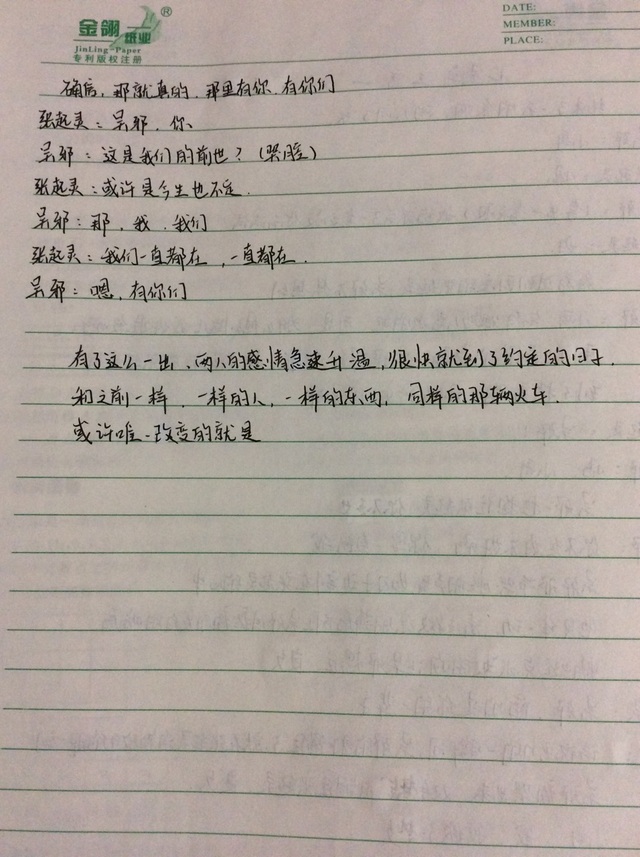 金翎纸业®
JinLing-Paper
专利版权注册
DATE:
MEMBER:
PLACE:
那就真的,那里有你,有你们
张起灵:吴邪,你
吴邪:这是我们的前世?(哭腔)
张起灵:或许是今生也不定.
吴邪:那,我,我们
张起灵:我们一直都在,一直都在.
吴邪:嗯,有你们
有了这么一出,两人的感情急速升温,很快就到了约定的日子.
和之前一样,一样的人,一样的东西,同样的那辆火车.
或许唯一改变的就是